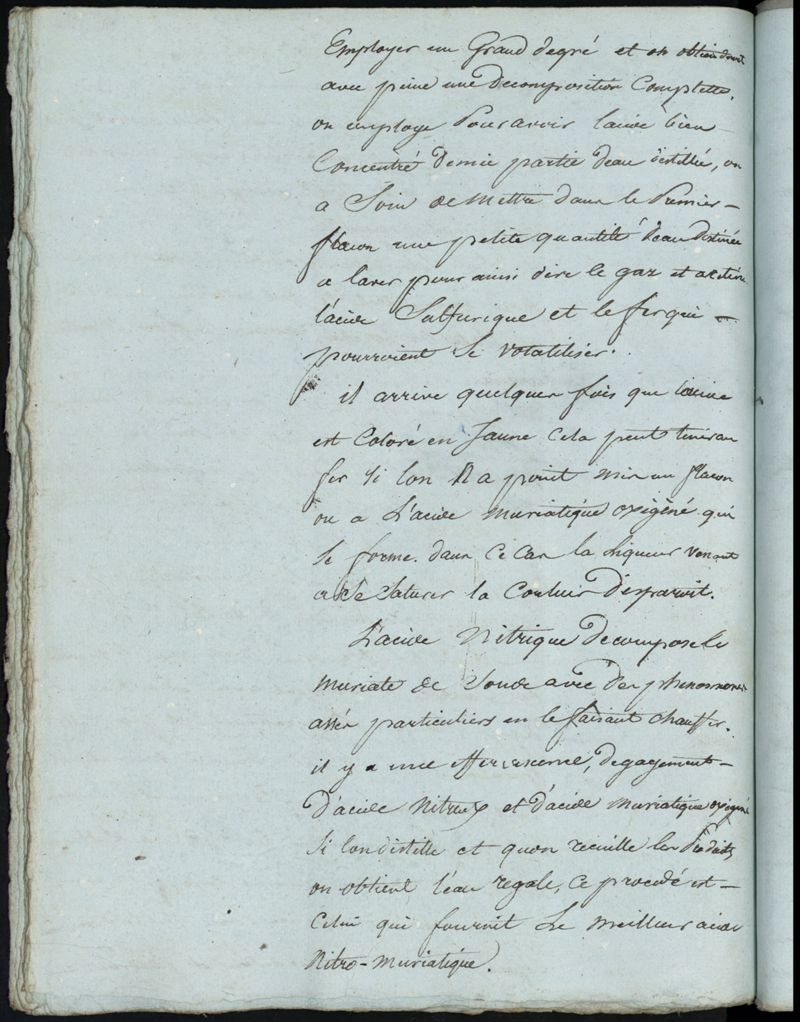 Employer un Grand degré et on obtiendroit
avec peine une Decomposition Complette.
on employe Pour avoir lacide bien
Concentré demie partie d'eau distillée, on
a Soin de Mettre dans le Premier
flacon une petite quantité d'eau Destinée
a laver pour ainsi dire le gaz et a retenir
l'acide Sulfurique et le fer qui
pourroient Se volatiliser.
il arrive quelques fois que lacide
est Coloré en Jaune Cela peut tenir au
fer Si lon N a point mis un flacon
ou a L'acide muriatique oxigèné qui
Se forme. dans Ce Cas la Liqueur venant
a Se Saturer la Couleur Disparoit.
L'acide Nitrique Decompose le
Muriate de Soude avec Des phenomenes
assés particuliers en le faisant chauffer.
il y a une effervescence, Degagement
D'acide Nitreux et d'acide muriatique oxigené
Si lon distille et quon recueille les Produits
on obtient l'eau regale, Ce procedé est
Celui qui fournit Le Meilleur acide
Nitro-muriatique.